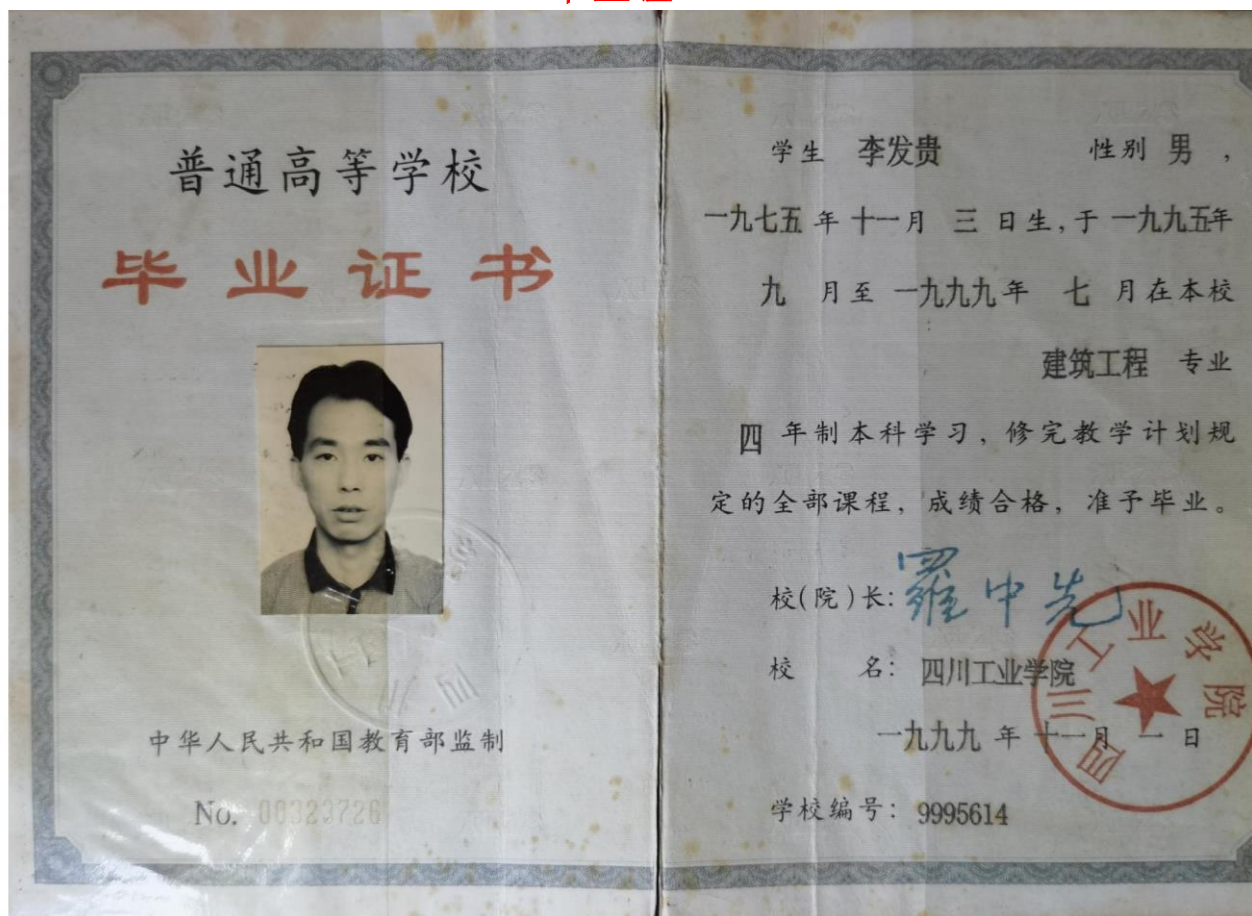 普通高等学校
毕业证书
中华人民共和国教育部监制
No. 00323726
学生 李发贵 性别 男，
一九七五年十一月三日生，于一九九五年
九月至一九九九年七月在本校
建筑工程 专业
四年制本科学习，修完教学计划规
定的全部课程，成绩合格，准予毕业。
校(院)长：羅中先
校名：四川工业学院
一九九九年十一月一日
学校编号：9995614
四川工业学院